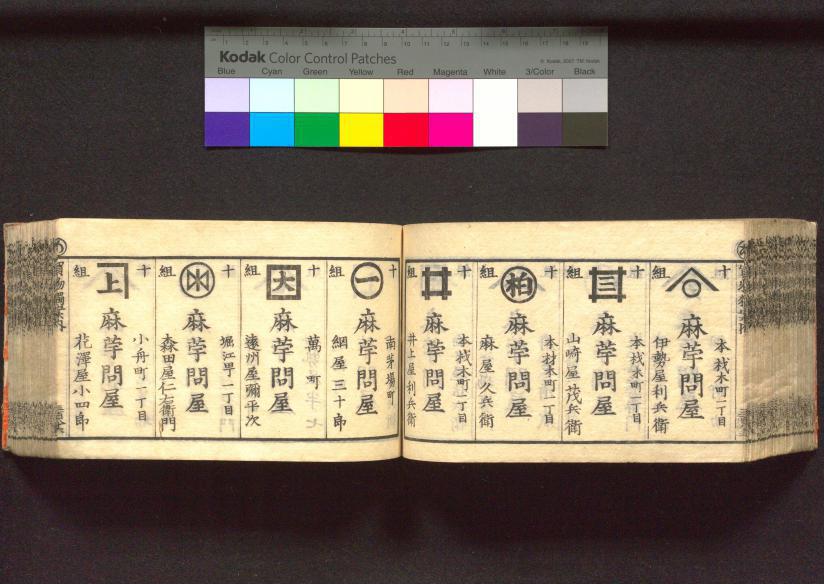 Kodak Color Control Patches
© Kodak, 2007 TM: Kodak
Blue Cyan Green Yellow Red Magenta White 3/Color Black
十組
本材木町一丁目
麻苧問屋
伊勢屋利兵衛
十組
三
本材木町一丁目
麻苧問屋
山崎屋茂兵衛
十組
柏
本材木町一丁目
麻苧問屋
麻屋久兵衛
十組
本材木町一丁目
麻苧問屋
井上屋利兵衛
十組
一
南茅場町
麻苧問屋
綱屋三十郎
十組
大
萬町
麻苧問屋
遠州屋彌平次
十組
堀江町一丁目
麻苧問屋
森田屋仁右衛門
十組
上
小舟町一丁目
麻苧問屋
花澤屋小四郎